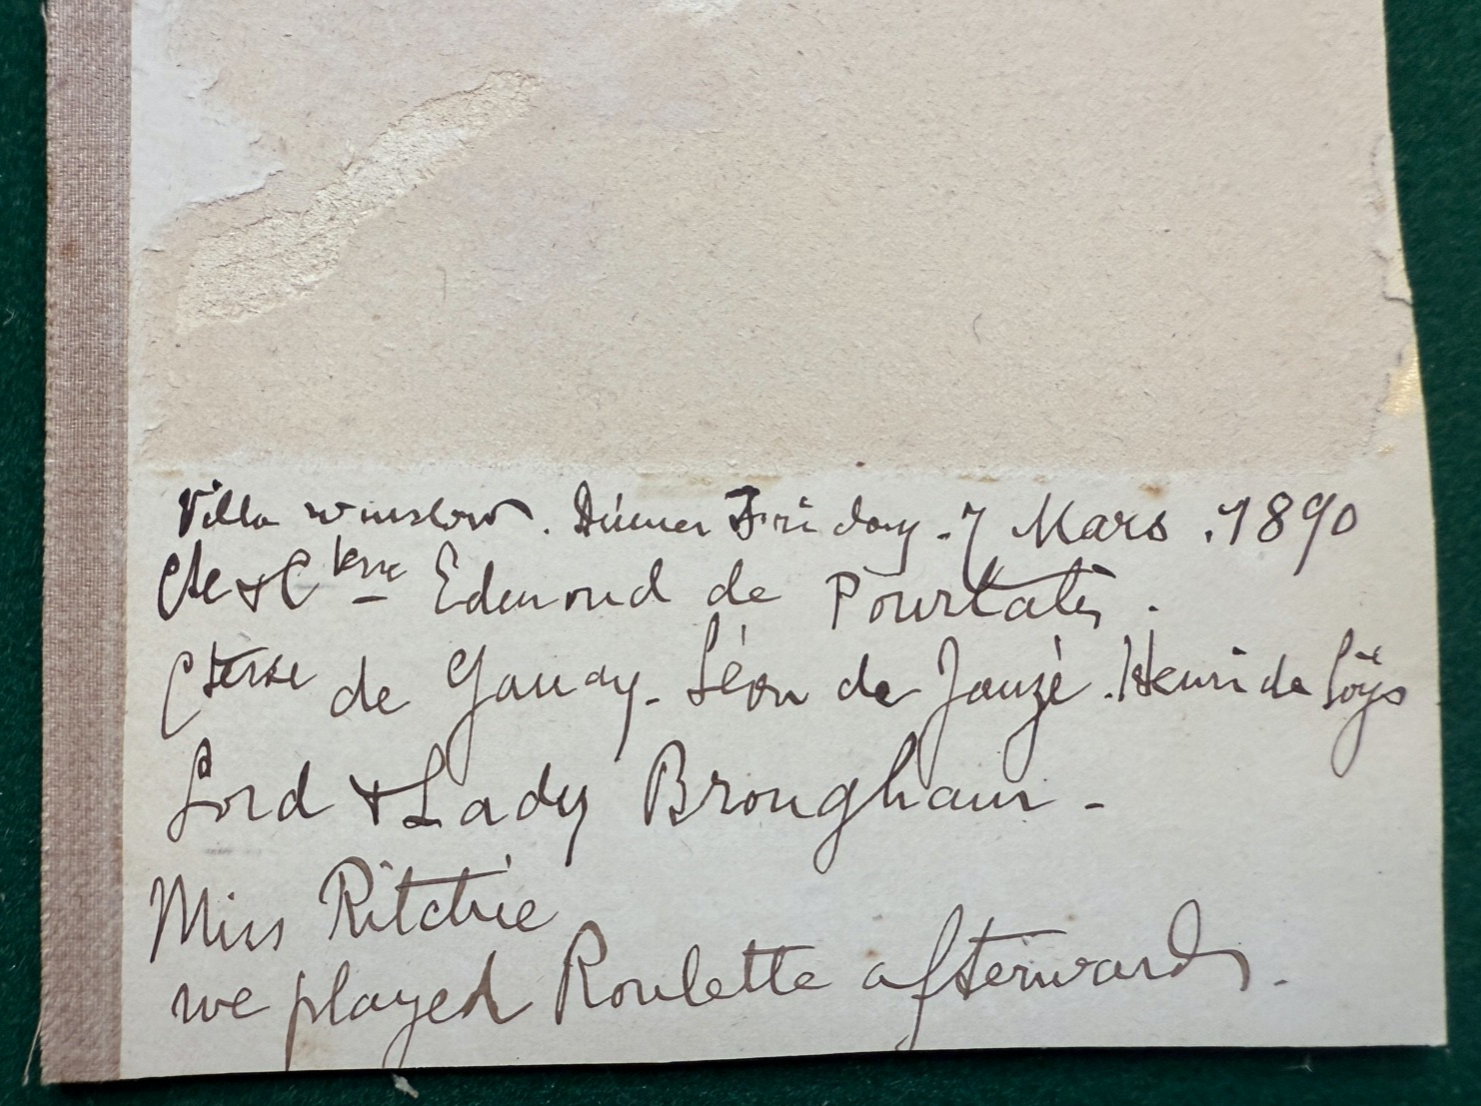 Villa Winslow. Dinner Friday. 7 Mars. 1890
Cte & Ctesse Edmond de Pourtalès.
Ctesse de Ganay. Léon de Janzé. Henri de Loÿs
Lord & Lady Brougham -
Miss Ritchie
we played Roulette afterwards.